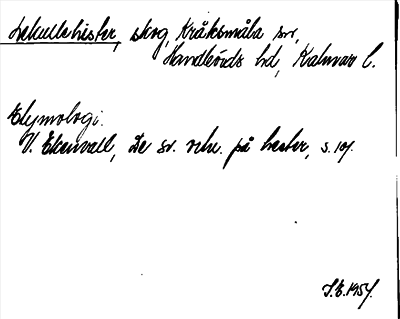 Lekullehester, skog, Kråksmåla sn,
Handbörds hd, Kalmar l.
Etymologi.
V. Ekenvall, De sv. rekv. på hester, s. 107.
S.E. 1957.